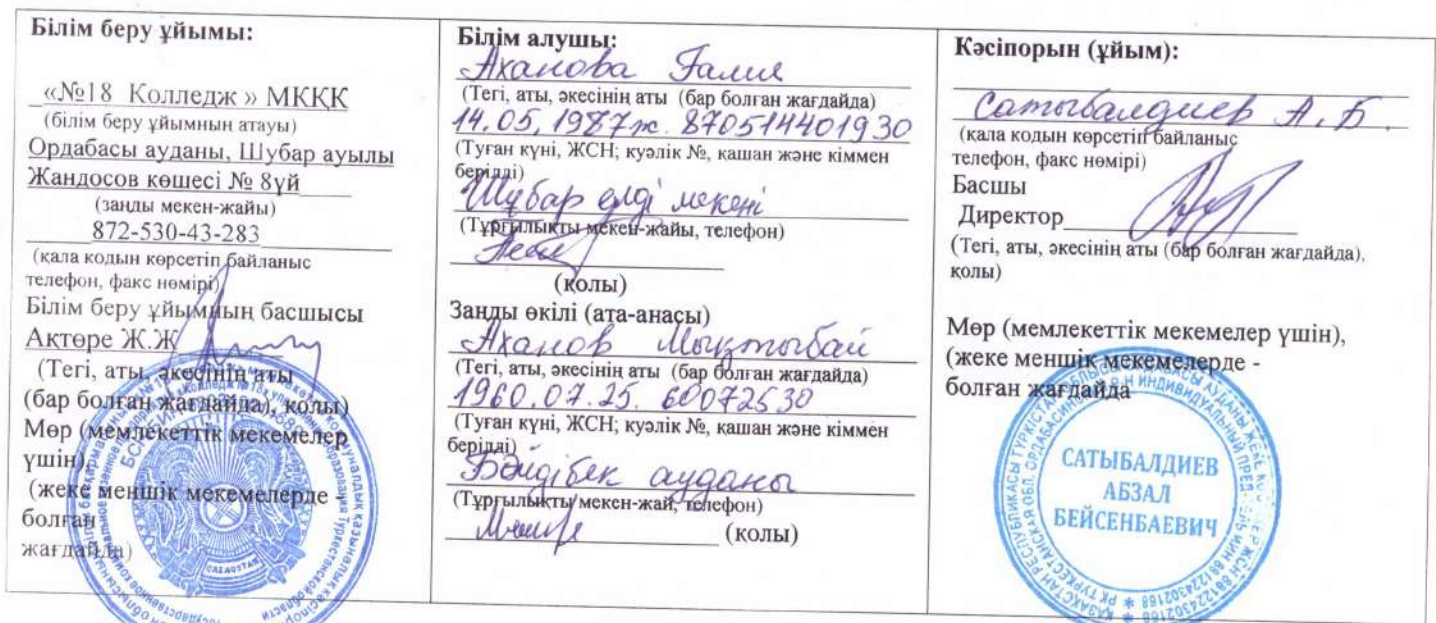 Білім беру ұйымы:
«№18 Колледж » МКҚК
(білім беру ұйымнын атауы)
Ордабасы ауданы, Шубар ауылы
Жандосов көшесі № 8үй
(заңды мекен-жайы)
872-530-43-283
(қала кодын көрсетіп байланыс
телефон, факс нөмірі)
Білім беру ұйымның басшысы
Ақтөре Ж.Ж
(Тегі, аты, әкесінің аты
(бар болған жағдайда), қолы)
Мөр (мемлекеттік мекемелер
үшін),
(жеке меншік мекемелерде -
болған
жағдайда)
Білім алушы:
Аханова Ғалия
(Тегі, аты, әкесінің аты (бар болған жағдайда)
14.05.1987ж. 870514401930
(Туған күні, ЖСН; куәлік №, қашан және кіммен
берілді)
Шұбар елді мекені
(Тұрғылықты мекен-жайы, телефон)
(қолы)
Заңды өкілі (ата-анасы)
Аханов Мықтыбай
(Тегі, аты, әкесінің аты (бар болған жағдайда)
1960.07.25. 60072530
(Туған күні, ЖСН; куәлік №, қашан және кіммен
берілді)
Бәйдібек ауданы
(Тұрғылықты мекен-жай, телефон)
(қолы)
Кәсіпорын (ұйым):
Сатыбалдиев А.Б.
(қала кодын көрсетіп байланыс
телефон, факс нөмірі)
Басшы
Директор
(Тегі, аты, әкесінің аты (бар болған жағдайда),
қолы)
Мөр (мемлекеттік мекемелер үшін),
(жеке меншік мекемелерде -
болған жағдайда
САТЫБАЛДИЕВ
АБЗАЛ
БЕЙСЕНБАЕВИЧ